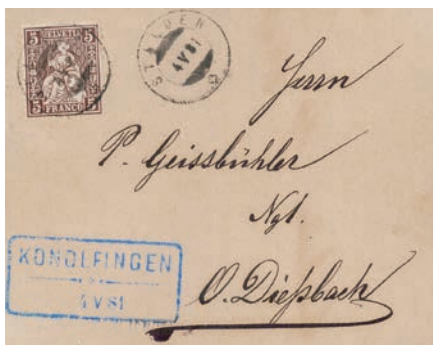 5 HELVETIA 5
5 FRANCO 5
STALDEN
4 V 81
Herrn
P. Geissbühler
Ngt.
O. Dießbach
KONOLFINGEN
4 V 81